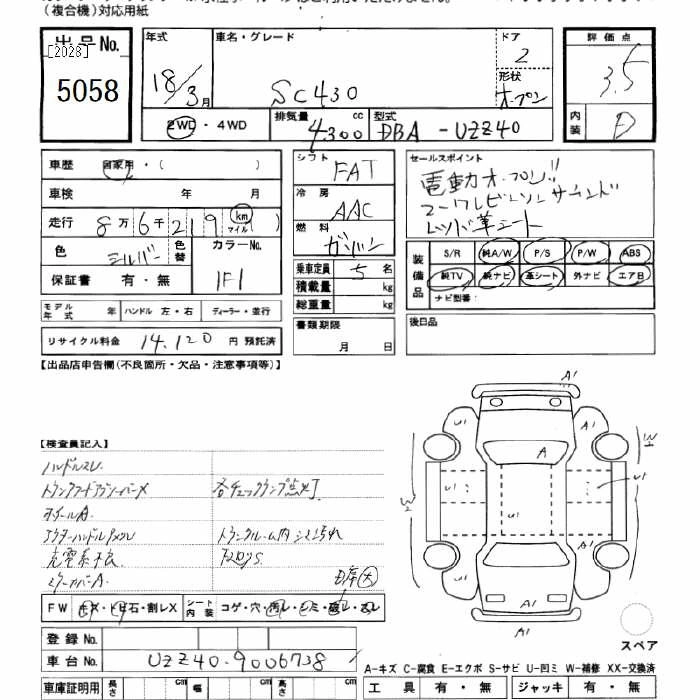 (複合機)対応用紙
出品No.
[2028]
5058
年式
18/3月
車名・グレード
SC430
ドア
2
形状
オープン
評価点
3.5
内装
D
2WD・4WD
排気量 4300 cc
型式 DBA-UZZ40
車歴 自家用・( )
車検 年 月
走行 8万6千219 km マイル
色 シルバー
色替
カラーNo. 1F1
保証書 有・無
モデル年式 年
ハンドル 左・右
ディーラー・並行
リサイクル料金 14,120 円 預託済
シフト FAT
冷房 AAC
燃料 ガソリン
乗車定員 5 名
積載量 kg
総重量 kg
書類期限
月 日
セールスポイント
電動オープン!!
マークレビンソンサウンド
レッド革シート
装備品
S/R 純A/W P/S P/W ABS
純TV 純ナビ 革シート 外ナビ エアB
ナビ型番:
後日品
【出品店申告欄(不良箇所・欠品・注意事項等)】
【検査員記入】
ハンドルスレ
各チェックランプ点灯
ホイールA
トランクルーム内シミ汚れ
ミラーカバーA
FW キズ・ト石・割レX
シート内装 コゲ・穴・汚レ・シミ・破レ・スレ
登録No.
車台No. UZZ40-9006738
車庫証明用 長さ cm 幅 cm 高さ cm
A1
U1
A1
A
W2
U1
U1
U1
A1
A1
A1
スペア
A-キズ C-腐食 E-エクボ S-サビ U-凹ミ W-補修 XX-交換済
工具 有・無 ジャッキ 有・無